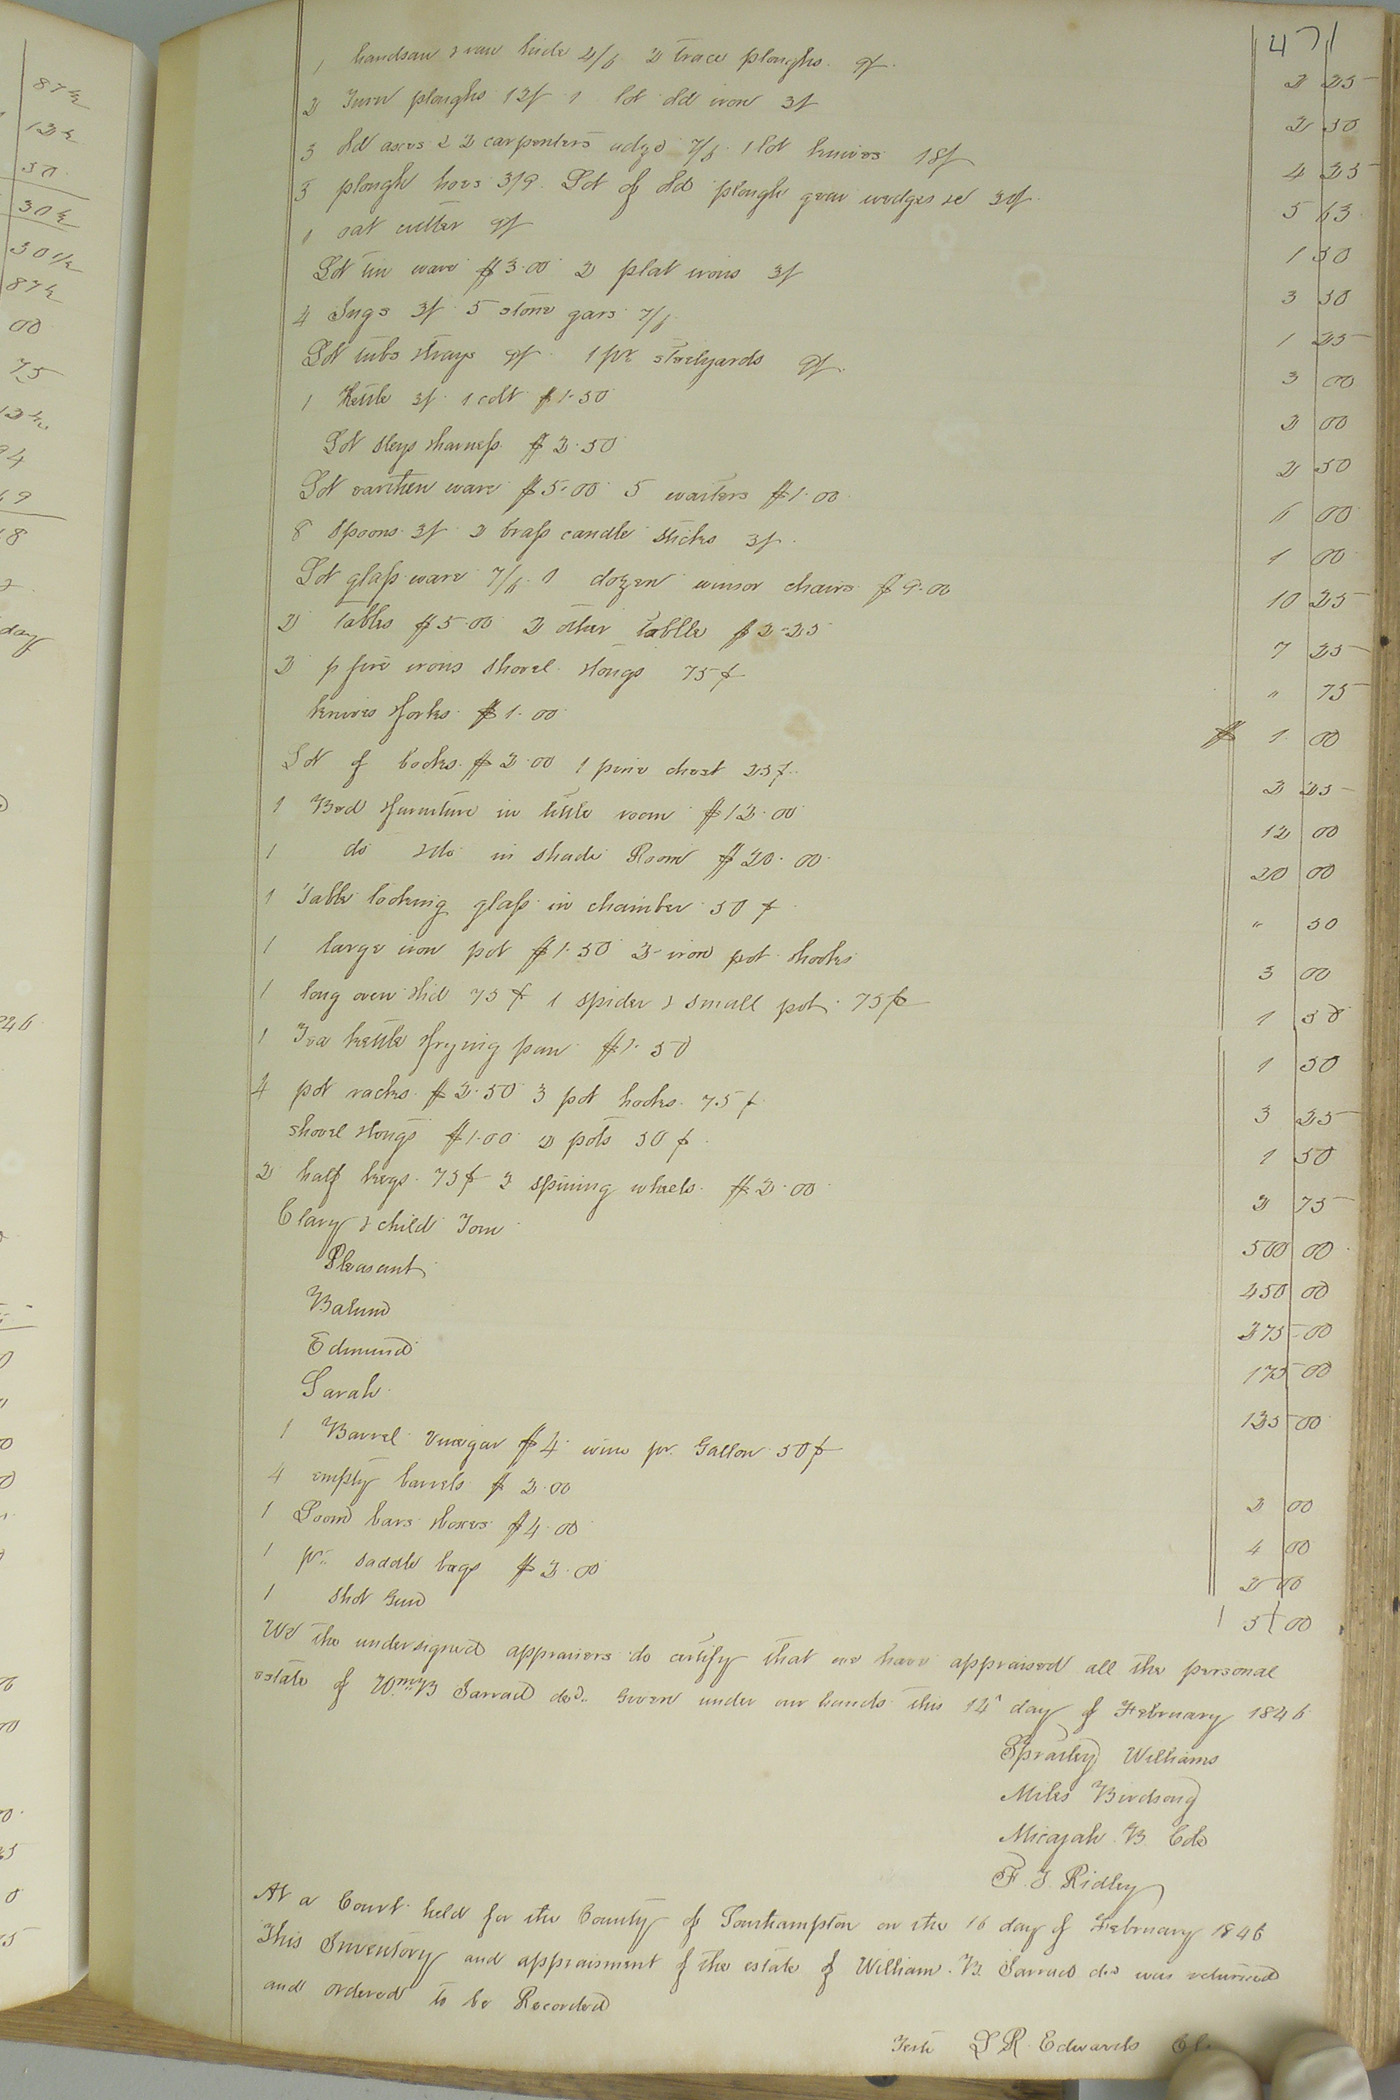 471
1 handsaw & raw hide 4/6 2 trace ploughs 9/ 2 25
2 Turn ploughs 12/ 1 lot old iron 3/ 2 50
3 old axes & 2 carpenters adze 7/6 1 lot knives 18/ 4 25
5 plough hoes 3/9 Lot of old plough gear wedges &c 30/ 5 63
1 oat cutter 9/ 1 50
Lot tin ware $3.00 2 flat irons 3/ 3 50
4 Jugs 3/ 5 stone gars 7/6 1 25
Lot tubs & trays 9/ 1 pr steelyards 9/ 3 00
1 Kettle 3/ 1 colt $1.50 2 00
Lot sleys & harness $2.50 2 50
Lot earthen ware $5.00 5 waiters $1.00 6 00
8 spoons 3/ 2 brass candle sticks 3/ 1 00
Lot glass ware 7/6 1 dozen winsor chairs $9.00 10 25
2 tables $5.00 2 other tablle $2.25 7 25
2 p fire irons shovel & tongs 75¢ " 75
knives & forks $1.00 $ 1 00
Lot of books $2.00 1 pine chest 25¢ 2 25
1 Bed & furniture in little room $12.00 12 00
1 do & do in shade Room $20.00 20 00
1 Table looking glass in chamber 50¢ " 50
1 large iron pot $1.50 2 iron pot & hooks 3 00
1 long oven & lid 75¢ 1 spider & small pot 75¢ 1 50
1 Tea kettle & frying pan $1.50 1 50
4 pot racks $2.50 3 pot hooks 75¢ 3 25
shovel & tongs $1.00 2 pots 50¢ 1 50
2 half kegs 75¢ 2 spining wheels $2.00 2 75
Clary & child Tom 500 00
Pleasant 450 00
Edmund 175 00
Sarah 125 00
1 Barrel Vinegar $4 wine pr Gallon 50¢
4 empty barrels $2.00 2 00
1 Loom bars & boxes $4.00 4 00
1 pr saddle bags $2.00 2 00
1 shot Gun 5 00
We the undersigned appraisers do certify that we have appraised all the personal
estate of Wm B decd. Given under our hands this 14 day of February 1846
Spratley Williams
Miles Birdsong
Micajah B
F. T. Ridley
At a Court held for the County of Southampton on the 16 day of February 1846
This Inventory and appraisment of the estate of William B. decd was returned
and ordered to be Recorded
Teste L R Edwards Cl